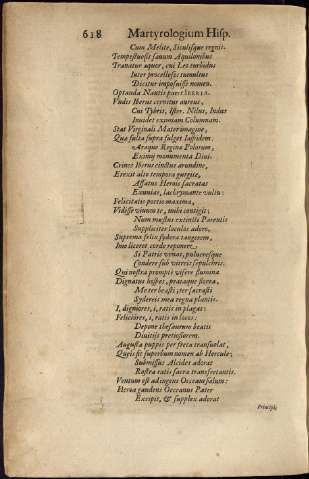 618 Martyrologium Hisp.
Cum Melite, Siculisque regnis.
Tempestuosis sanum Aquilonibus
Tranatur æquor, cui Leo turbidus
Inter procellosos tumultus
Dicitur imposuisse nomen.
Optanda Nautis patet IBERIA.
Vndis Iberus cernitur aureus,
Cui Tybris, Ister, Nilus, Indus
Inuidet eximiam Columnam.
Stat Virginali Mater imagine,
Qua fulta supra fulget Iaspidem.
Ataque Regina Polorum,
Eximij monumenta Diui.
Crines Iberus cinctus arundine,
Erexit alto tempora gurgite,
Affatus Herois sacratas
Exuuias, lachrymante vultu:
Felicitatis portio maxima,
Vidisse viuum te, mihi contigit;
Num mæstus extincti Parentis
Suppliciter loculos adoro.
Suprema felix sydera tangerem,
Imo liceret corde reponere;
Si Patris vrnas, pulcresque
Condere sub vitreis sepulchris.
Qui nostra prompte visere flumina
Dignatus hospes, prataque florea,
Mater beasti; ter sacrasti
Sydereis mea regna plantis.
I, digniores, i, ratis in plagas:
Feliciores, i, ratis in locos:
Depone thesaurum beatis
Diuitijs pretiosiorem.
Augusta puppis per freta transuolat,
Queis sit superbum nomen ab Hercule;
Submissus Alcides adorat
Rostra ratis sacra transfretantis.
Ventum est ad ingens Oceani salum:
Heroa gaudens Oceanus Pater
Excipit, & supplex adorat
Principis